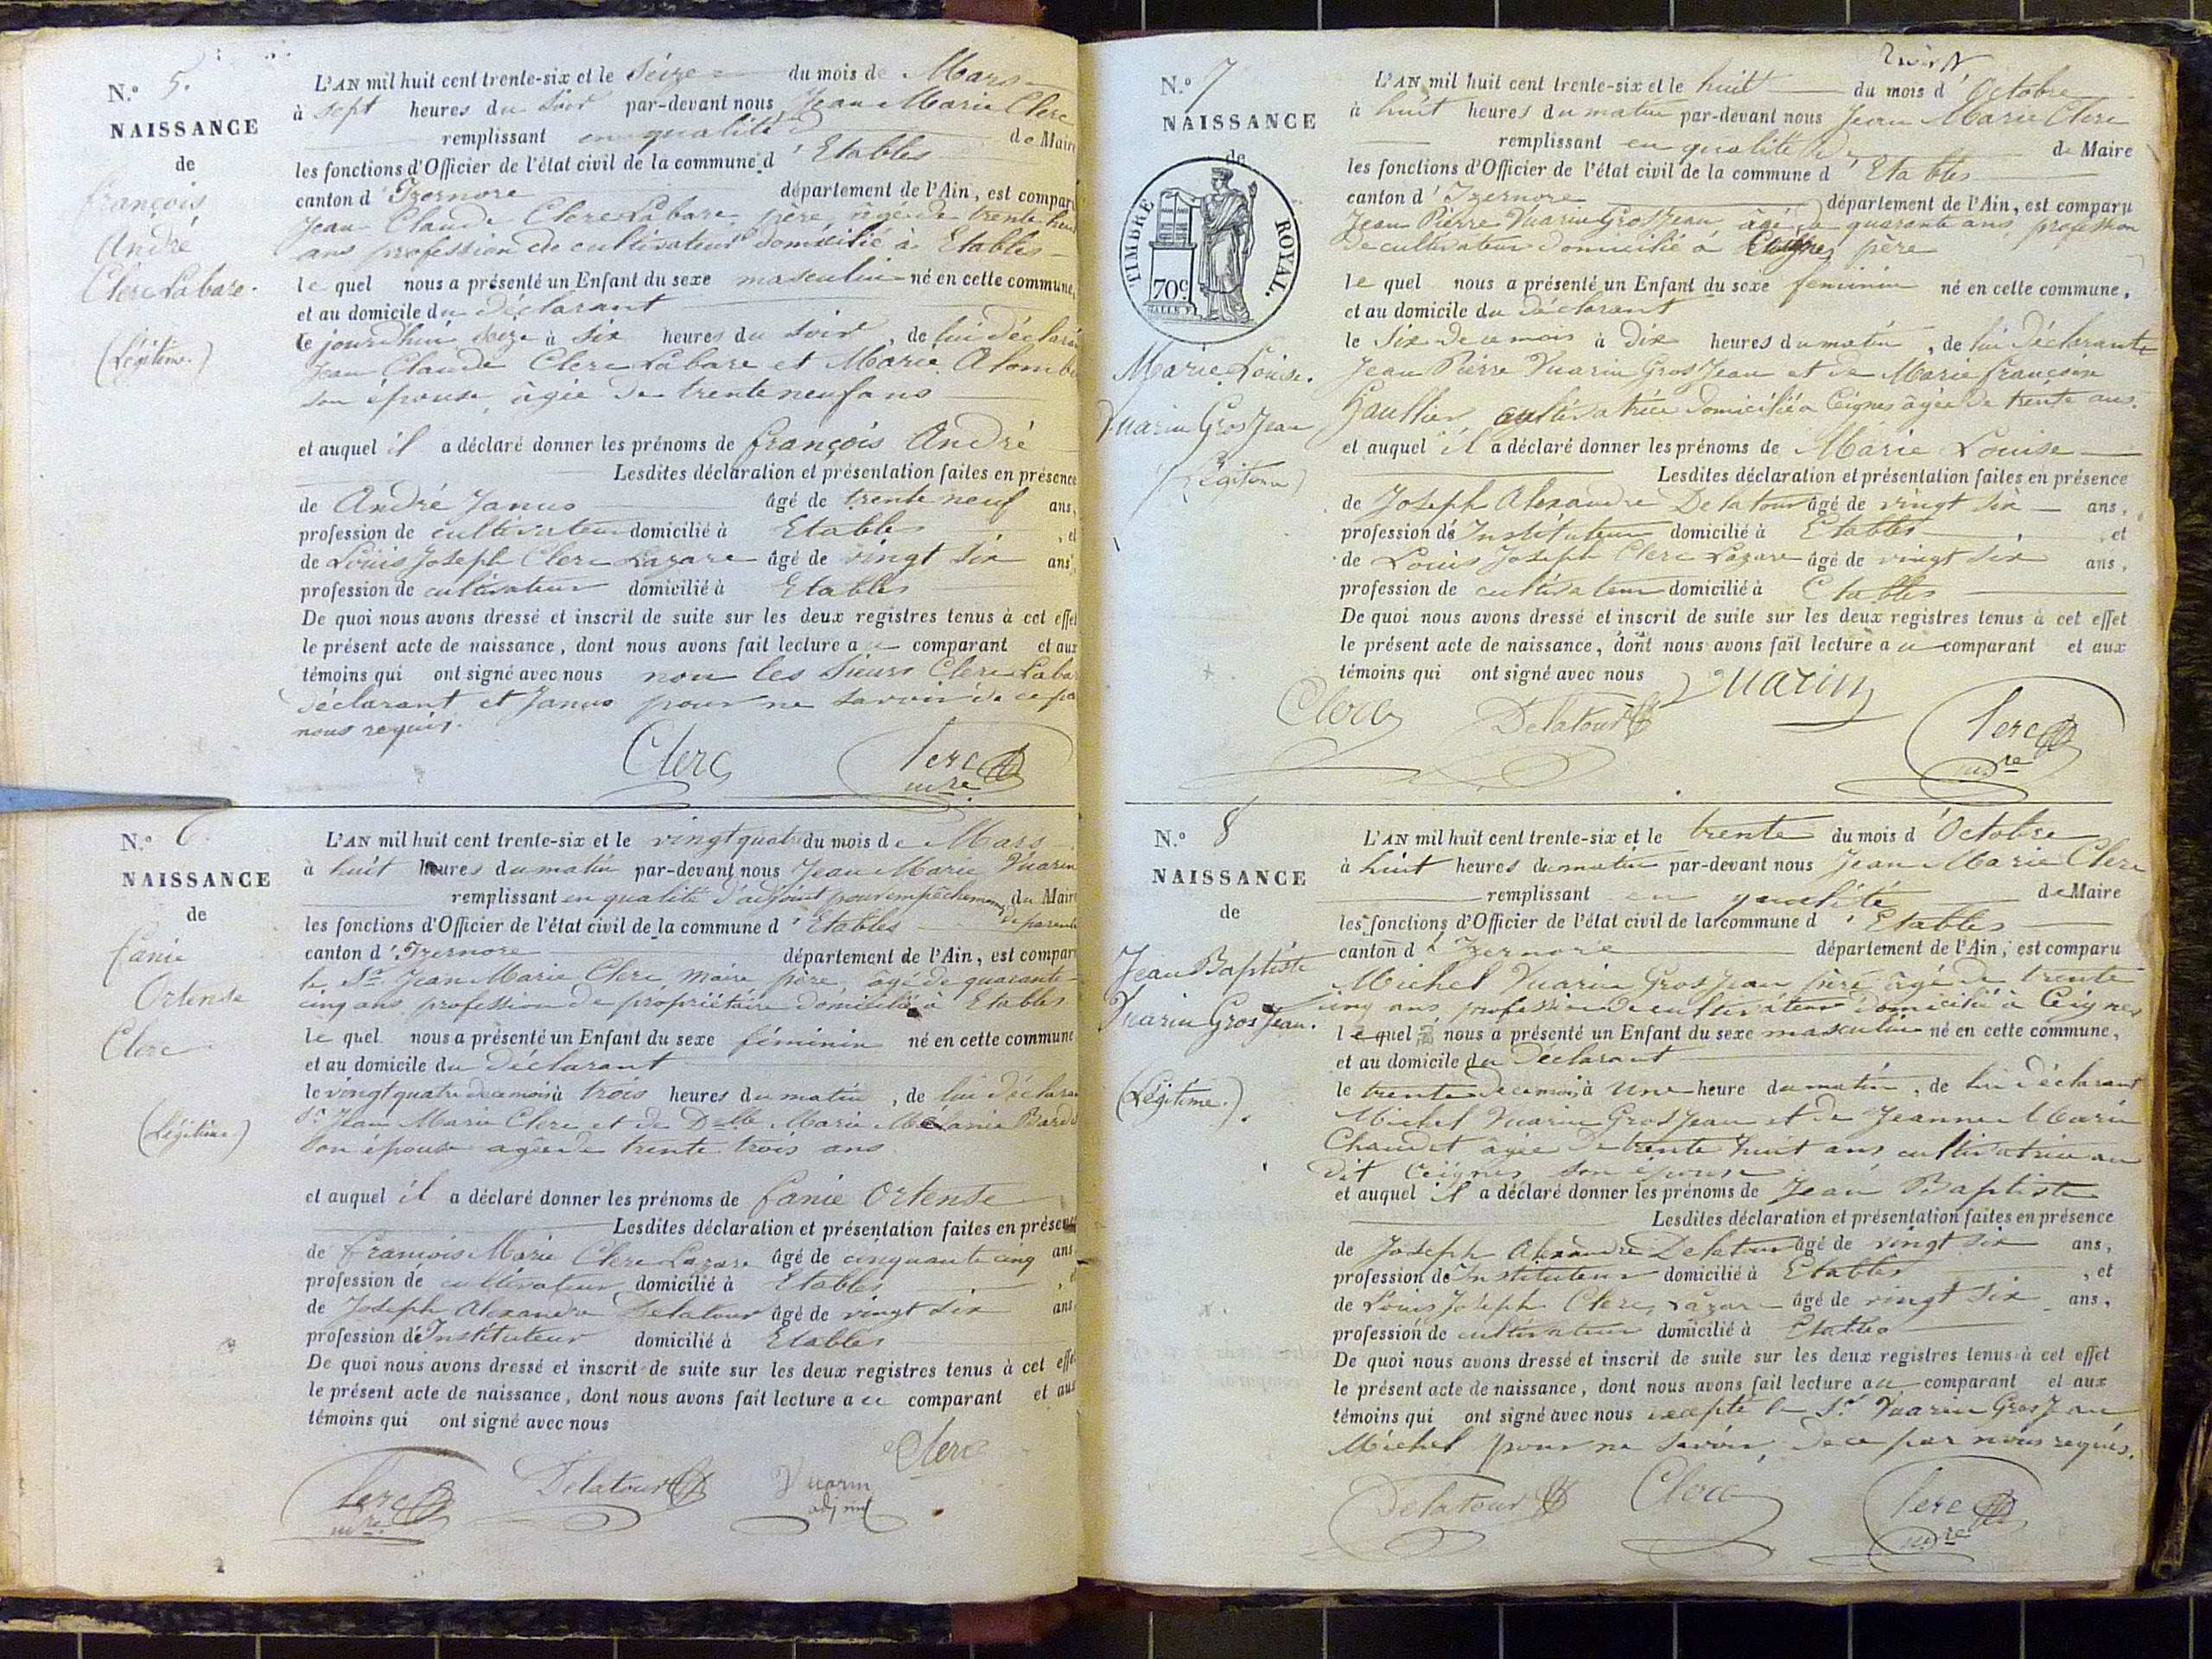 N.º 5.
NAISSANCE
de
françois
André
Clerc Labare.
(Légitime.)
L'AN mil huit cent trente-six et le seize du mois de Mars
à sept heures du soir par-devant nous Jean Marie Clerc
remplissant en qualité de Maire
les fonctions d'Officier de l'état civil de la commune d'Etables
canton d'Izernore département de l'Ain, est comparu
Jean Claude Clerc Labare, père, âgé de trente huit
ans profession de cultivateur domicilié à Etables
le quel nous a présenté un Enfant du sexe masculin né en cette commune,
et au domicile du déclarant
le jourdhui seize à six heures du soir, de lui déclarant
Jean Claude Clerc Labare et Marie Alombe
son épouse, âgée de trente neuf ans
et auquel il a déclaré donner les prénoms de françois André
Lesdites déclaration et présentation faites en présence
de André Janus âgé de trente neuf ans,
profession de cultivateur domicilié à Etables, et
de Louis Joseph Clerc Lazare âgé de vingt six ans,
profession de cultivateur domicilié à Etables
De quoi nous avons dressé et inscrit de suite sur les deux registres tenus à cet effet
le présent acte de naissance, dont nous avons fait lecture au comparant et aux
témoins qui ont signé avec nous non les Sieurs Clerc Labar
déclarant et Janus pour ne savoir de ce pa
nous requis.
Clerc Clerc
mre
N.º 6.
NAISSANCE
de
fanie
Ortense
Clerc
(Légitime.)
L'AN mil huit cent trente-six et le vingt quatre du mois de Mars
à huit heures du matin par-devant nous Jean Marie Vuarin
remplissant en qualité d'adjoint pour empêchement du Maire
de parenté
les fonctions d'Officier de l'état civil de la commune d'Etables
canton d'Izernore département de l'Ain, est comparu
le Sr. Jean Marie Clerc, maire, père, âgé de quarante
cinq ans, profession de propriétaire domicilié à Etables
le quel nous a présenté un Enfant du sexe féminin né en cette commune
et au domicile du déclarant
le vingt quatre de ce mois à trois heures du matin, de lui déclarant
Sr. Jean Marie Clerc et de Dlle Marie Mélanie
son épouse âgée de trente trois ans
et auquel il a déclaré donner les prénoms de fanie Ortense
Lesdites déclaration et présentation faites en présence
de françois Marie Clerc Lazare âgé de cinquante cinq ans
profession de cultivateur domicilié à Etables, et
de Joseph Alexandre Delatour âgé de vingt six ans
profession d'Instituteur domicilié à Etables
De quoi nous avons dressé et inscrit de suite sur les deux registres tenus à cet effet
le présent acte de naissance, dont nous avons fait lecture au comparant et aux
témoins qui ont signé avec nous
Clerc
Clerc Delatour Vuarin
mre adjoint
N.º 7
NAISSANCE
de
TIMBRE ROYAL.
70c
Marie Louise.
Vuarin GrosJean
(Légitime)
L'AN mil huit cent trente-six et le huit du mois d'Octobre
à huit heures du matin par-devant nous Jean Marie Clerc
remplissant en qualité de Maire
les fonctions d'Officier de l'état civil de la commune d'Etables
canton d'Izernore département de l'Ain, est comparu
Jean Pierre Vuarin GrosJean, âgé de quarante ans, profession
de cultivateur domicilié à Ceignes père
le quel nous a présenté un Enfant du sexe féminin né en cette commune,
et au domicile du déclarant
le six de ce mois à dix heures du matin, de lui déclarante
Jean Pierre Vuarin GrosJean et de Marie françoise
Gaultier cultivatrice domiciliée à Ceignes âgée de trente ans.
et auquel il a déclaré donner les prénoms de Marie Louise
Lesdites déclaration et présentation faites en présence
de Joseph Alexandre Delatour âgé de vingt six ans,
profession d'Instituteur domicilié à Etables, et
de Louis Joseph Clerc Lazare âgé de vingt six ans,
profession de cultivateur domicilié à Etables
De quoi nous avons dressé et inscrit de suite sur les deux registres tenus à cet effet
le présent acte de naissance, dont nous avons fait lecture au comparant et aux
témoins qui ont signé avec nous Vuarin
Clerc Delatour Clerc
mre
N.º 8
NAISSANCE
de
Jean Baptiste
Vuarin GrosJean.
(Légitime.)
L'AN mil huit cent trente-six et le trente du mois d'Octobre
à huit heures du matin par-devant nous Jean Marie Clerc
remplissant en qualité de Maire
les fonctions d'Officier de l'état civil de la commune d'Etables
canton d'Izernore département de l'Ain, est comparu
Michel Vuarin GrosJean père âgé de trente
cinq ans, profession de cultivateur domicilié à Ceignes
le quel nous a présenté un Enfant du sexe masculin né en cette commune,
et au domicile du déclarant
le trente de ce mois à une heure du matin, de lui déclarant
Michel Vuarin GrosJean et de Jeanne Marie
Chaudet âgée de trente huit ans cultivatrice au
dit Ceignes son épouse
et auquel il a déclaré donner les prénoms de Jean Baptiste
Lesdites déclaration et présentation faites en présence
de Joseph Alexandre Delatour âgé de vingt six ans,
profession d'Instituteur domicilié à Etables, et
de Louis Joseph Clerc Lazare âgé de vingt six ans,
profession de cultivateur domicilié à Etables
De quoi nous avons dressé et inscrit de suite sur les deux registres tenus à cet effet
le présent acte de naissance, dont nous avons fait lecture au comparant et aux
témoins qui ont signé avec nous excepté le Sr. Vuarin GrosJean
Michel pour ne savoir, de ce par nous requis.
Delatour Clerc Clerc
mre